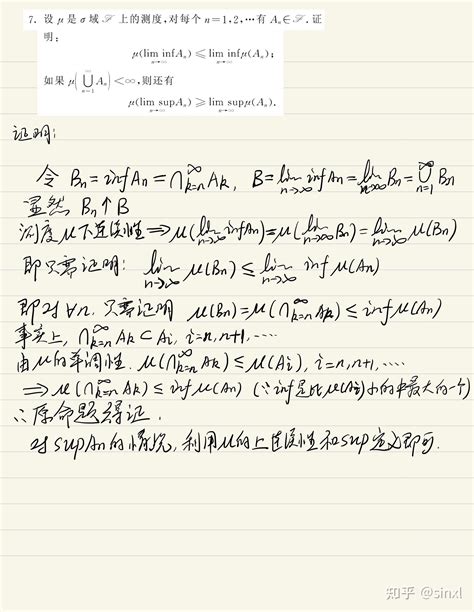 7. 设 μ 是 σ 域 ℱ 上的测度,对每个 n=1,2,⋯有 Aₙ∈ℱ. 证
明:
μ(lim inf Aₙ) ≤ lim inf μ(Aₙ);
n→∞ n→∞
如果 μ(⋃_{n=1}^∞ Aₙ) <∞,则还有
μ(lim sup Aₙ) ≥ lim sup μ(Aₙ).
n→∞ n→∞
证明:
令 Bₙ = inf Aₙ = ⋂_{k=n}^∞ Aₖ, B = lim_{n→∞} inf Aₙ = lim_{n→∞} Bₙ = ⋃_{n=1}^∞ Bₙ
显然 Bₙ↑B
测度 μ 下连续性 ⇒ μ(lim_{n→∞} inf Aₙ) = μ(lim_{n→∞} Bₙ) = lim_{n→∞} μ(Bₙ)
即只需证明: lim_{n→∞} μ(Bₙ) ≤ lim_{n→∞} inf μ(Aₙ)
即对 ∀n. 只需证明 μ(Bₙ) = μ(⋂_{k=n}^∞ Aₖ) ≤ inf μ(Aₙ)
事实上, ⋂_{k=n}^∞ Aₖ ⊂ Aᵢ, i=n,n+1,⋯
由 μ 的单调性. μ(⋂_{k=n}^∞ Aₖ) ≤ μ(Aᵢ), i=n,n+1,⋯
⇒ μ(⋂_{k=n}^∞ Aₖ) ≤ inf μ(Aₙ) (∵ inf 是比 μ(Aᵢ) 小的中最大的一个)
∴ 原命题得证.
对 sup Aₙ 的情况, 利用 μ 的上连续性和 sup 定义即可.
知乎 @sinxl